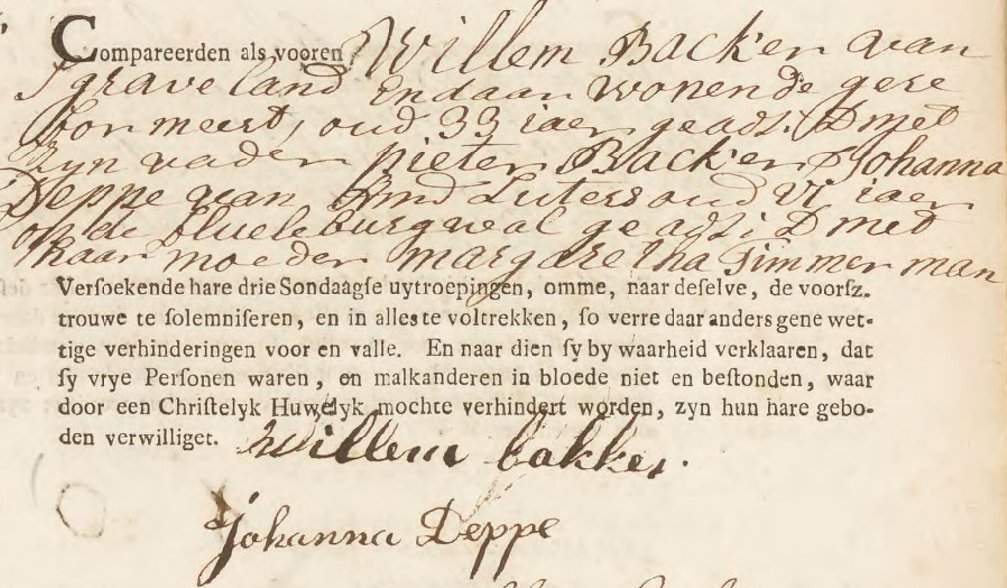 Compareerden als vooren Willem Backer van
S graveland En daar wonende gere
formeert, oud 33 iaer geads: D met
Zyn vader pieter Backer & Johanna
Deppe van Amd Luters oud VI iaer
op de blueleburgwal geadsi D met
haar moeder margaretha Timmerman
Versoekende hare drie Sondaagse uytroepingen, omme, naar deselve, de voorsz.
trouwe te solemniseren, en in alles te voltrekken, so verre daar anders gene wet-
tige verhinderingen voor en valle. En naar dien sy by waarheid verklaaren, dat
sy vrye Personen waren, en malkanderen in bloede niet en bestonden, waar
door een Christelyk Huwelyk mochte verhindert worden, zyn hun hare gebo-
den verwilliget.
willem bakker.
Johanna Deppe